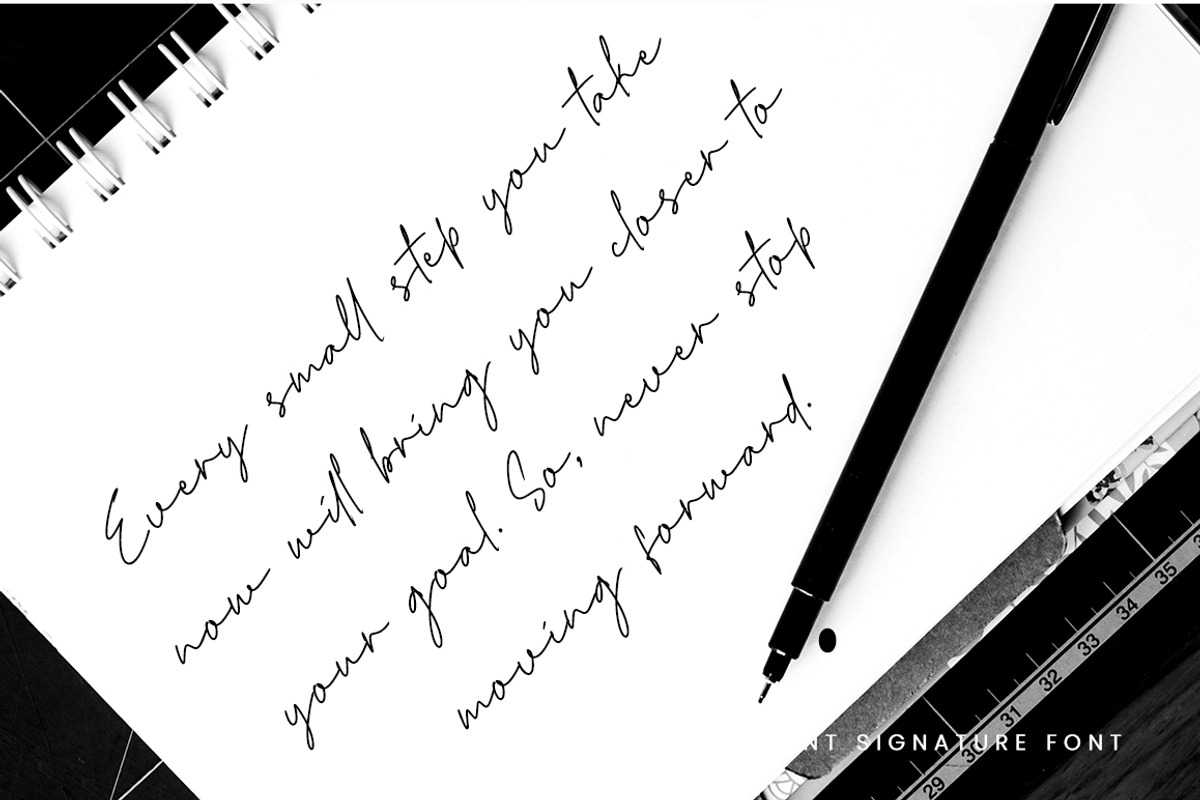 Every small step you take
now will bring you closer to
your goal. So, never stop
moving forward.
NT SIGNATURE FONT
29
30
31
32
33
34
35